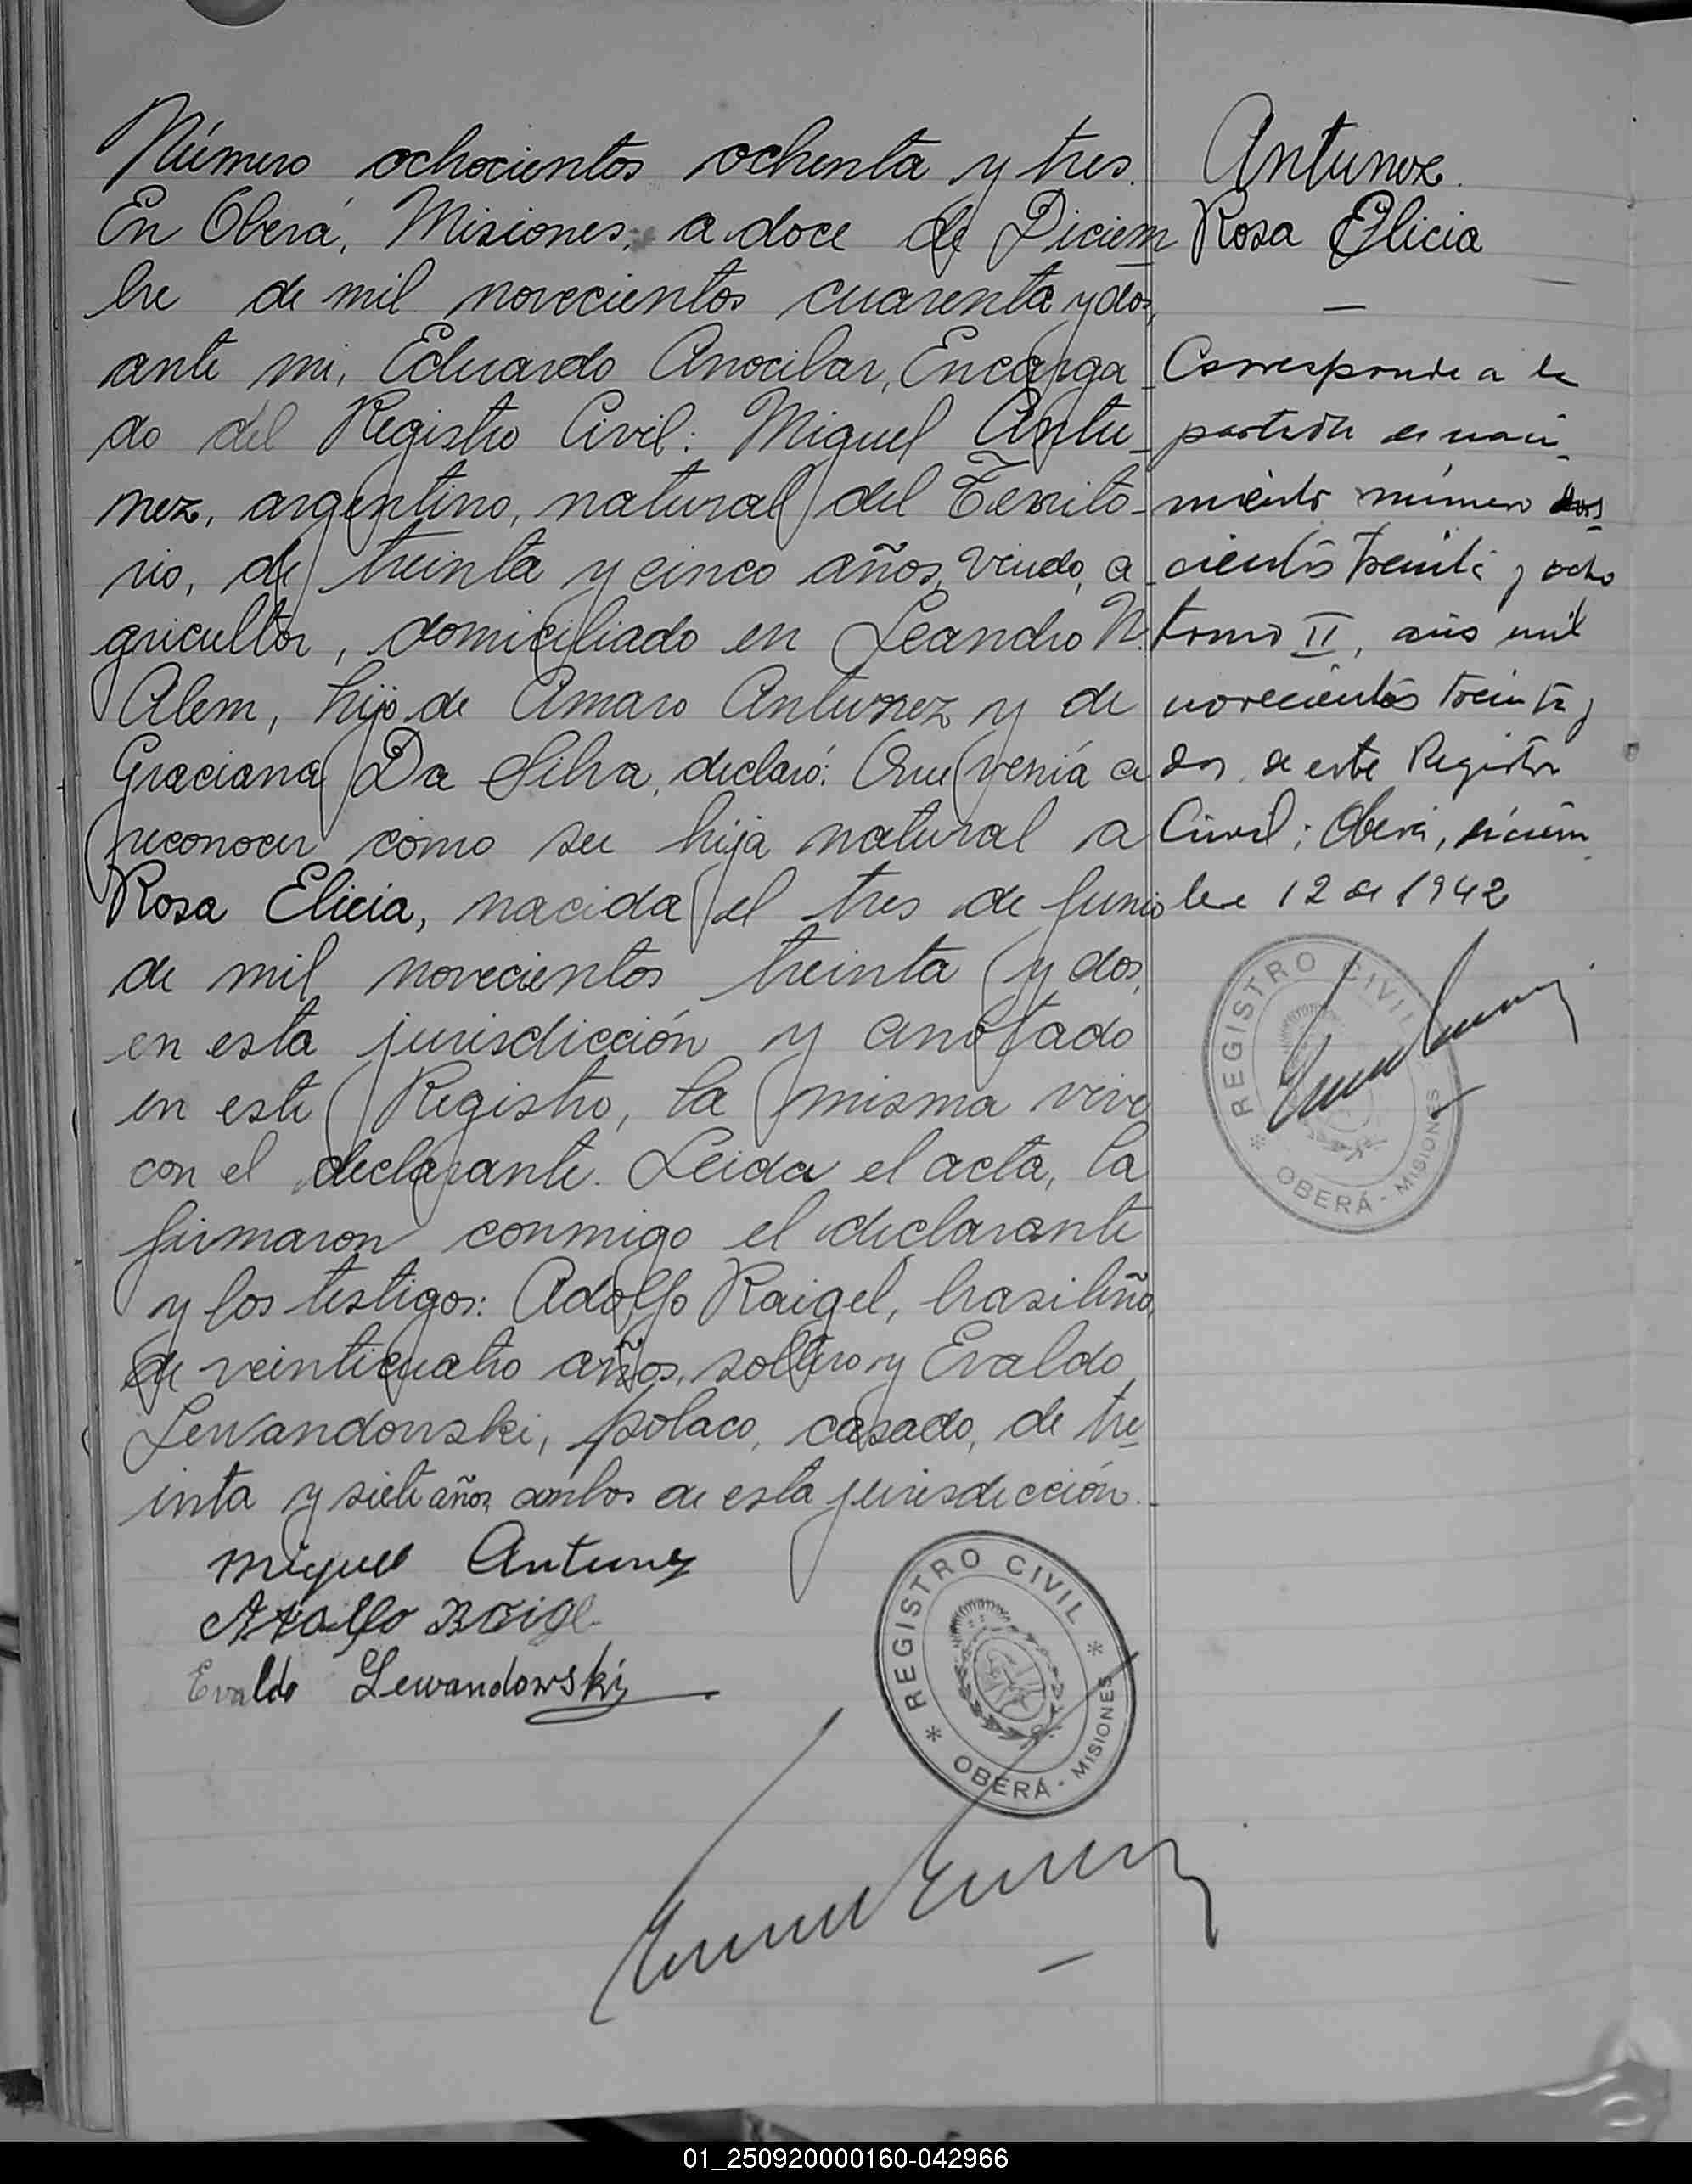 Número ochocientos ochenta y tres.
En Oberá, Misiones, a doce de Diciem
bre de mil novecientos cuarenta y dos,
ante mi, Eduardo Anocibar, Encarga
do del Registro Civil: Miguel Antu
nez, argentino, natural del Territo-
rio, de treinta y cinco años, viudo, a
gricultor, domiciliado en Leandro N.
Alem, hijo de Amaro Antunez y de
Graciana Da Silva, declaró: Que venía a
reconocer como su hija natural a
Rosa Elicia, nacida el tres de Junio
de mil novecientos treinta y dos,
en esta jurisdicción y anotado
en este Registro, la misma vive
con el declarante. Leida el acta, la
firmaron conmigo el declarante
y los testigos: Adolfo Raigel, brasileño,
de veinticuatro años, soltero y Evaldo
Lewandowski, polaco, casado, de tre
inta y siete años, ambos de esta jurisdicción.
Miguel Antunez
Evaldo Lewandowski
REGISTRO CIVIL
OBERÁ - MISIONES
Antunez
Rosa Elicia
Corresponde a la
partida de naci
miento número dos
cientos treinta y ocho
tomo II, año mil
novecientos treinta y
dos, de este Registro
Civil; Oberá, diciem
bre 12 de 1942
REGISTRO CIVIL
OBERÁ - MISIONES
01_250920000160-042966